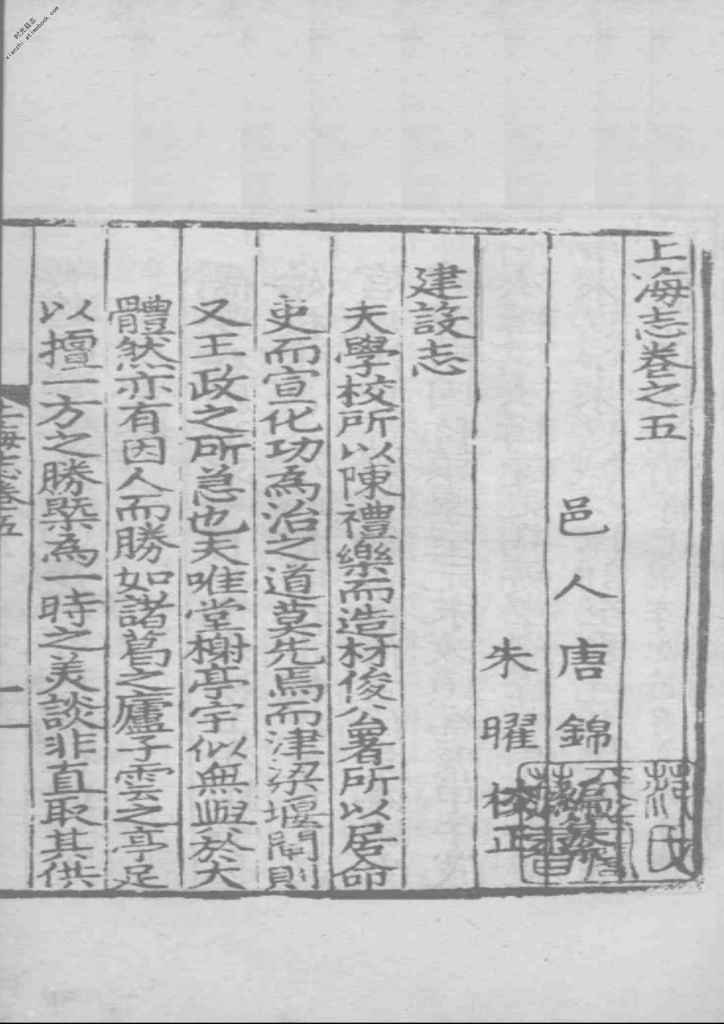 上海志卷之五
邑人唐錦編纂
朱曜校正
建設志
夫學校所以陳禮樂而造材俊公署所以居命
吏而宣化功為治之道莫先焉而津梁堰閘則
又王政之所急也夫唯堂榭亭宇似無與於大
體然亦有因人而勝如諸葛之廬子雲之亭足
以擅一方之勝槩為一時之美談非直取其供
上海志卷五
一